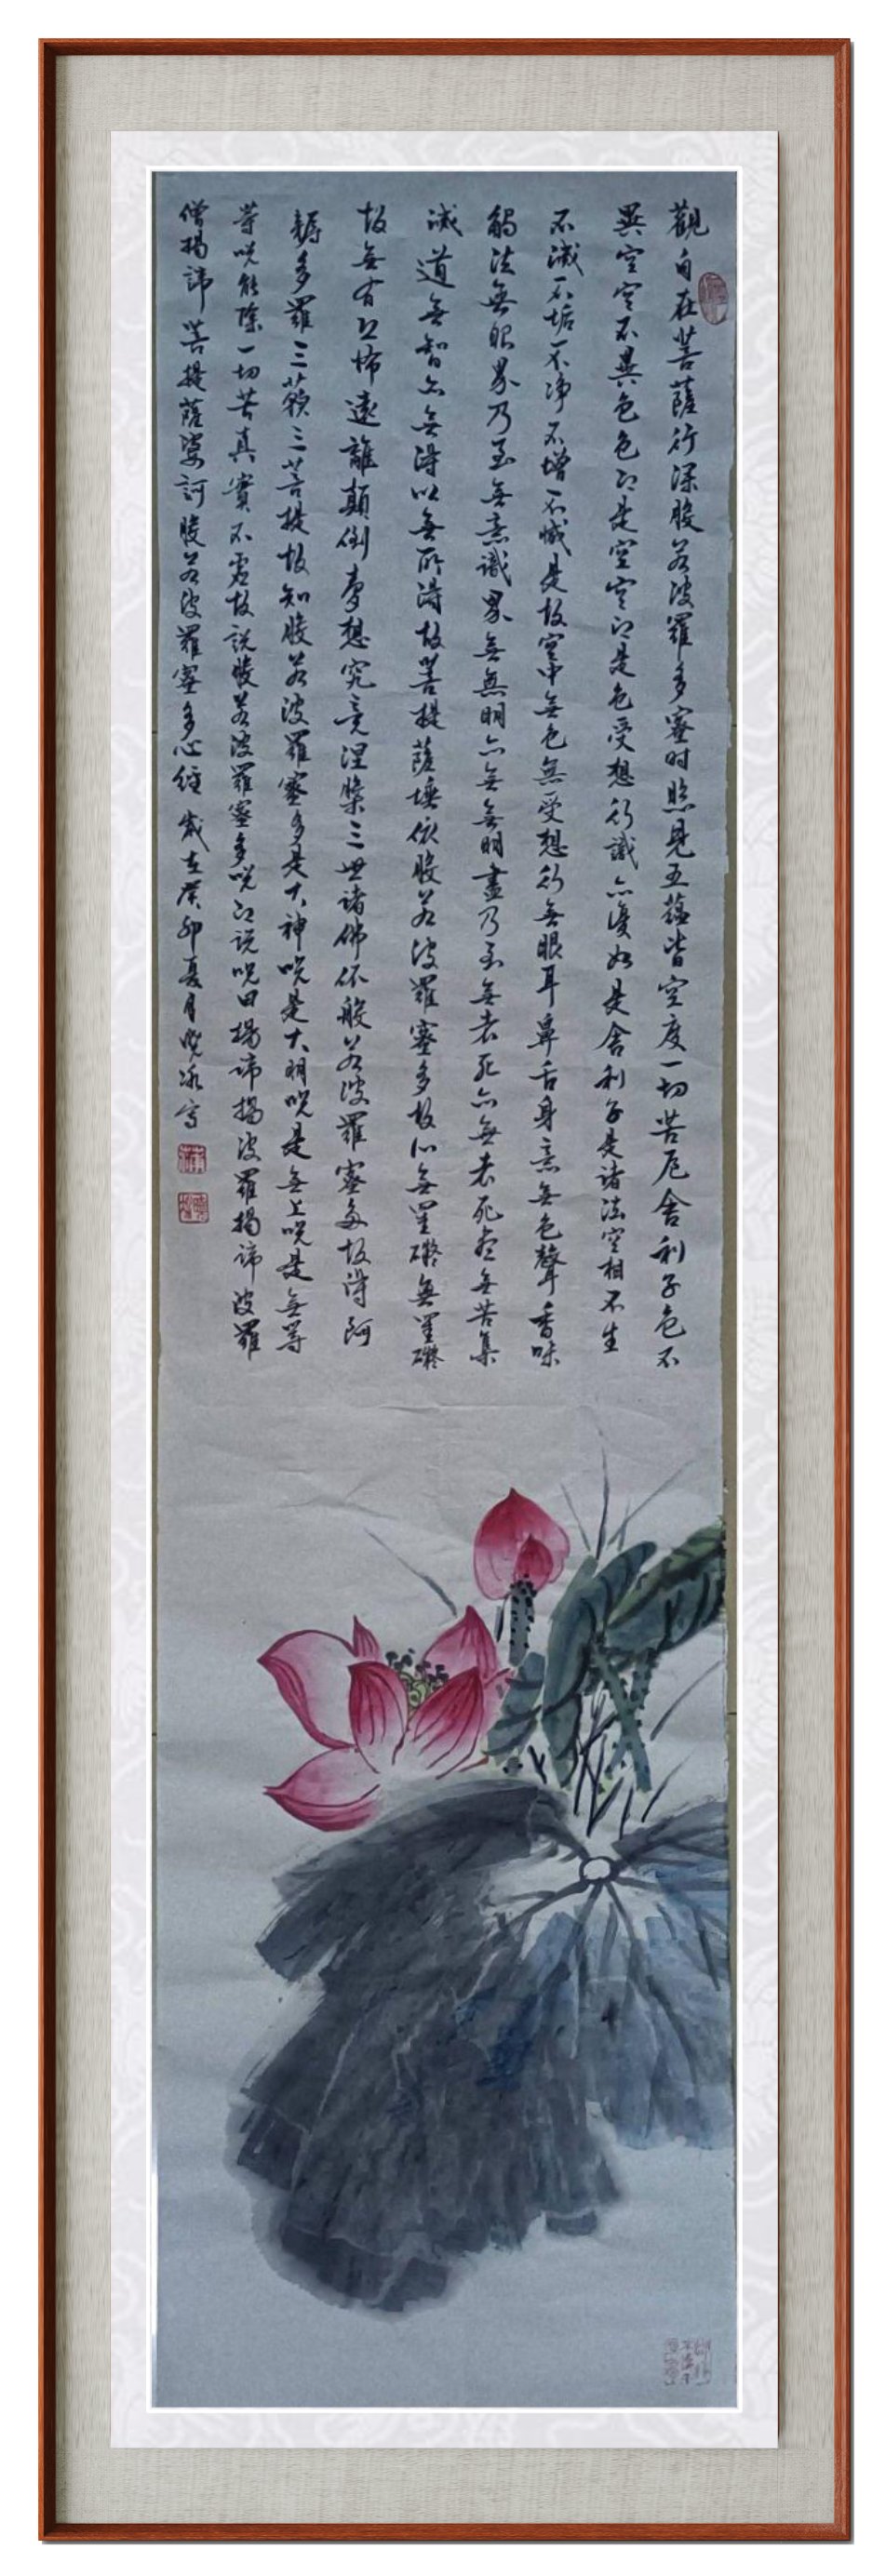 觀自在菩薩行深般若波羅多蜜时照見五蘊皆空度一切苦厄舍利子色不
異空空不異色色即是空空即是色受想行識亦復如是舍利子是諸法空相不生
不滅不垢不净不增不減是故空中無色無受想行無眼耳鼻舌身意無色聲香味
觸法無眼界乃至無意識界無無明亦無無明盡乃至無老死亦無老死盡無苦集
滅道無智亦無得以無所得故菩提薩埵依般若波羅蜜多故心無罣礙無罣礙
故無有恐怖遠離顛倒夢想究竟涅槃三世諸佛依般若波羅蜜多故得阿
耨多羅三藐三菩提故知般若波羅蜜多是大神咒是大明咒是無上咒是無等
等咒能除一切苦真實不虛故説般若波羅蜜多咒即説咒曰揭諦揭波羅揭諦波羅
僧揭諦菩提薩婆訶般若波羅蜜多心經 歲在癸卯夏月晓冰寫